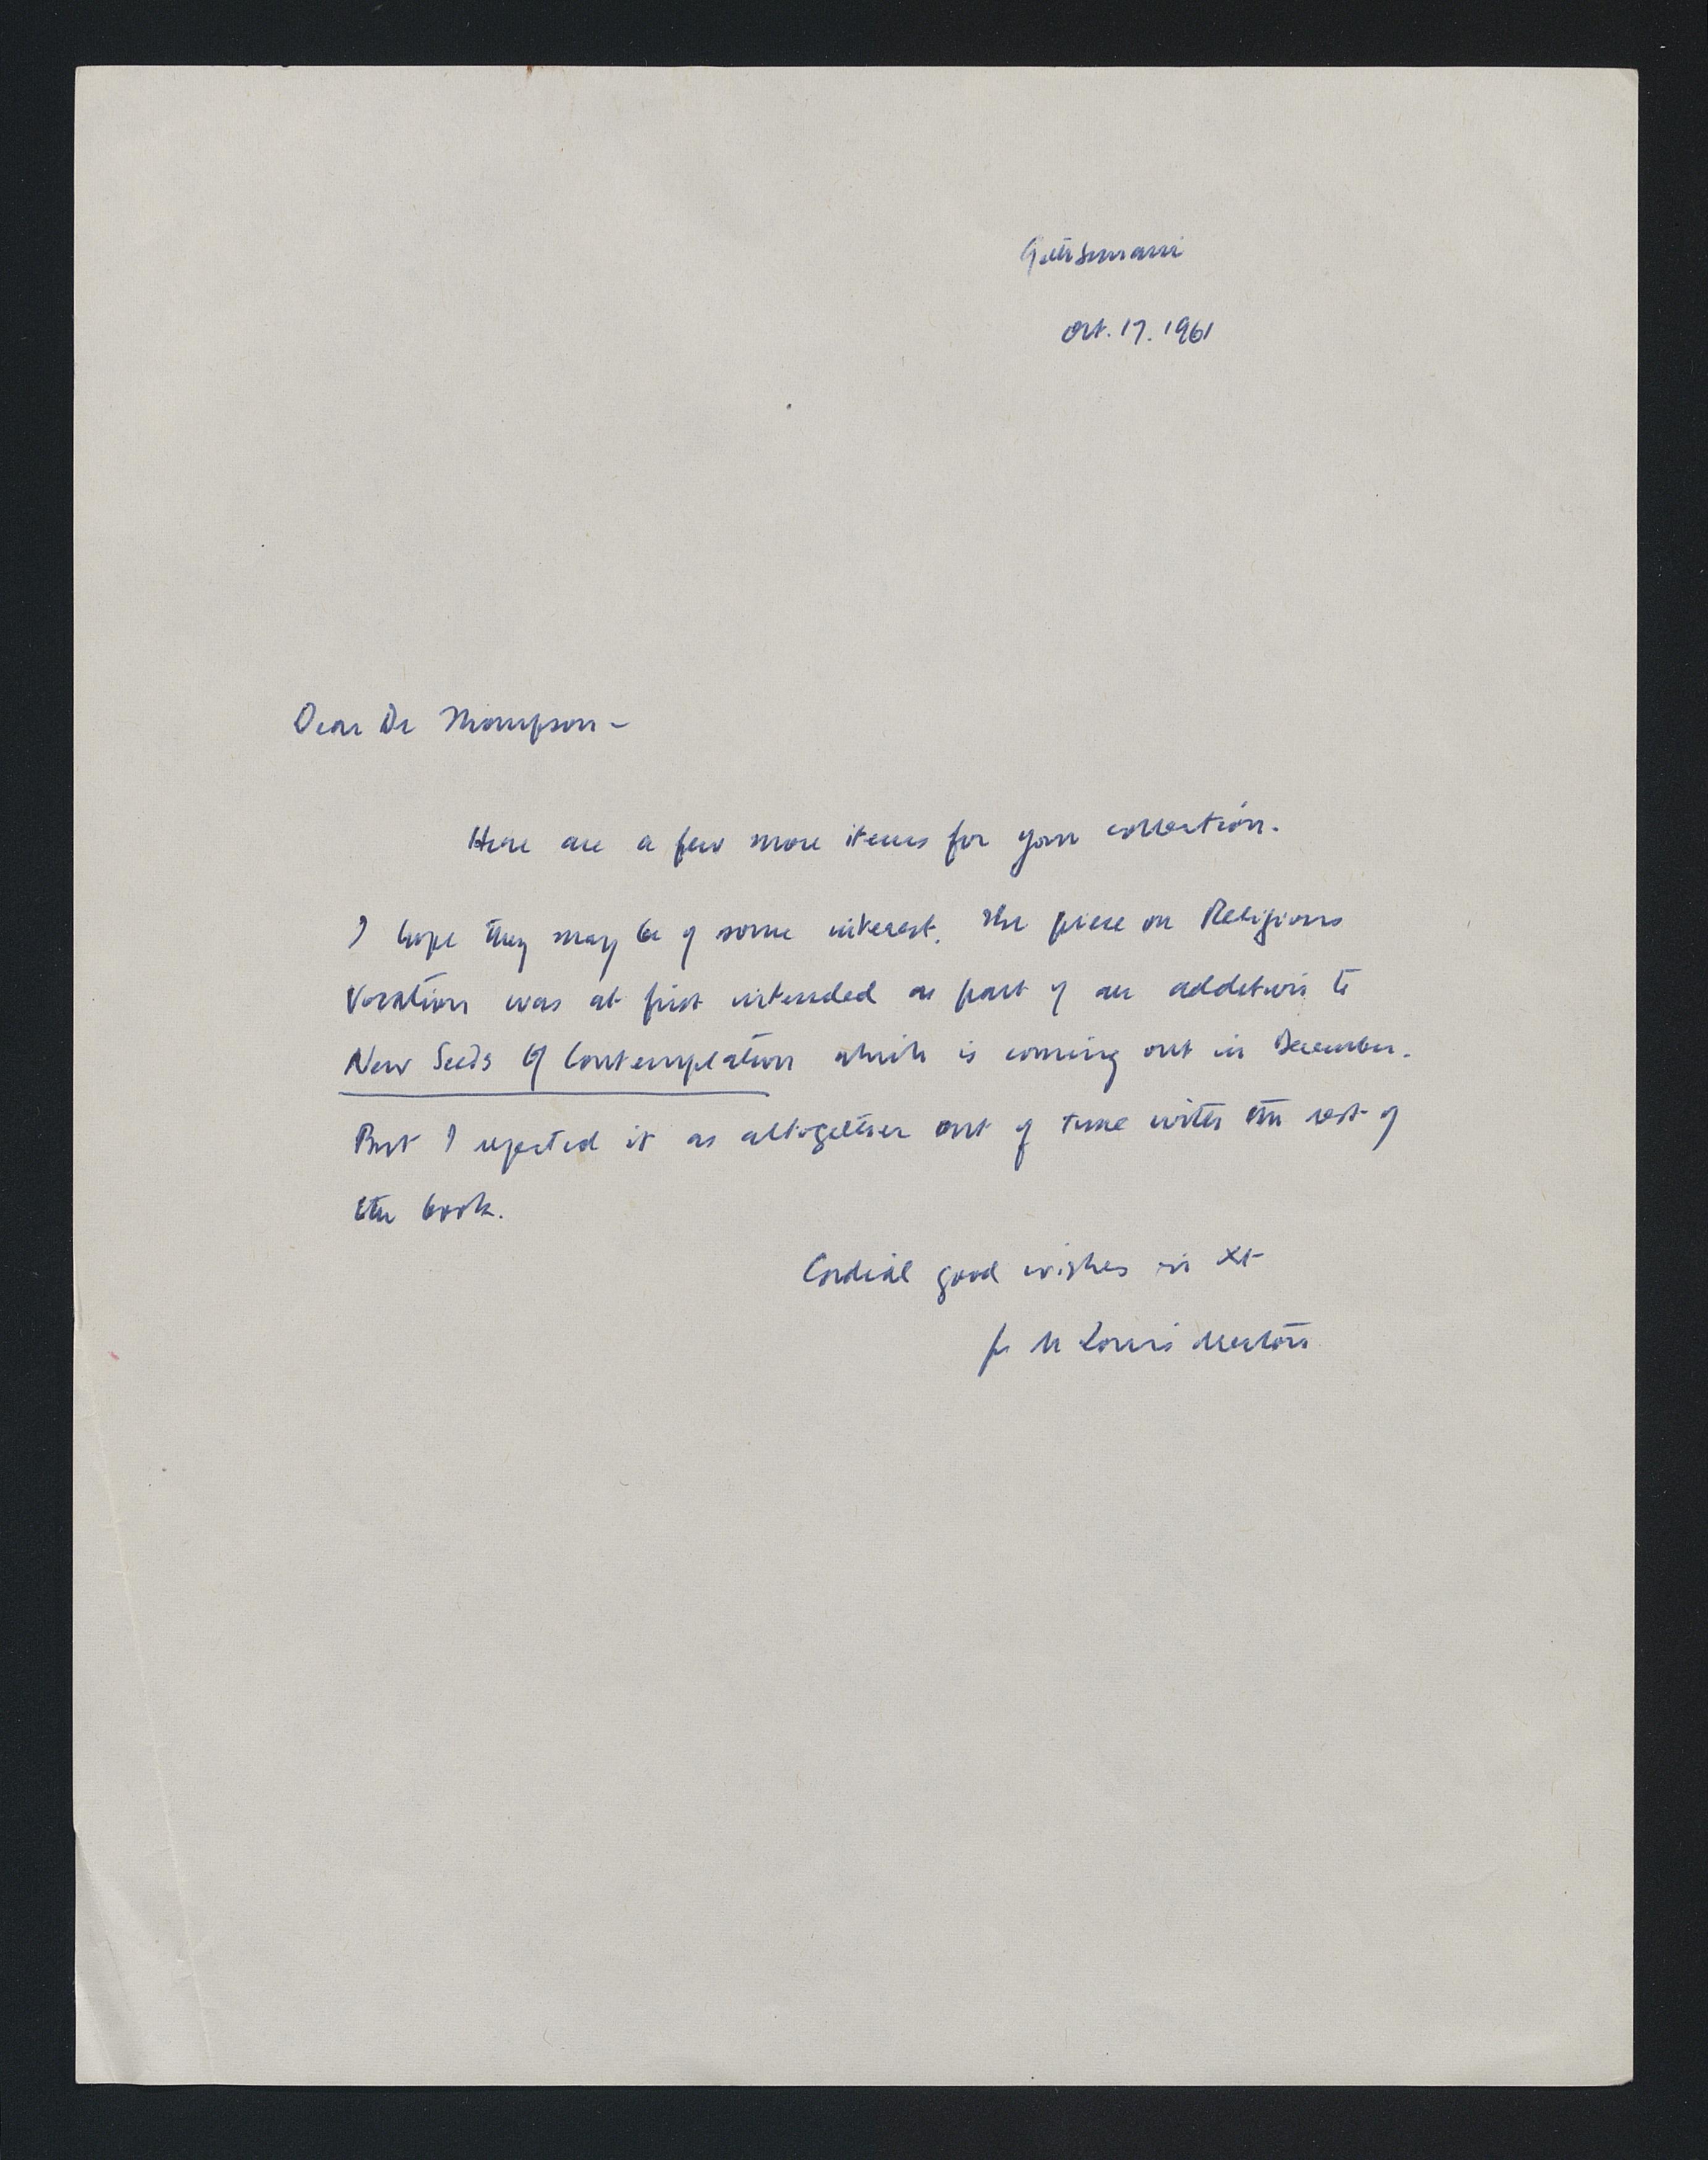 Gethsemani
Oct. 17. 1961
Dear Dr Thompson –
Here are a few more items for your collection.
I hope they may be of some interest. The piece on Religious
Vocation was at first intended as part of an addition to
New Seeds Of Contemplation which is coming out in December.
But I rejected it as altogether out of tune with the rest of
the book.
Cordial good wishes in Xt
fr M Louis Merton